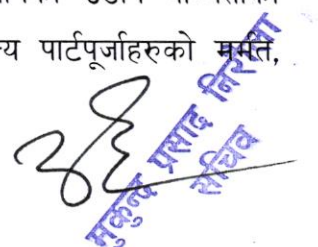 य पार्टपूर्जाहरुको मर्मत,
मुकुन्द प्रसाद निरौला
सचिव